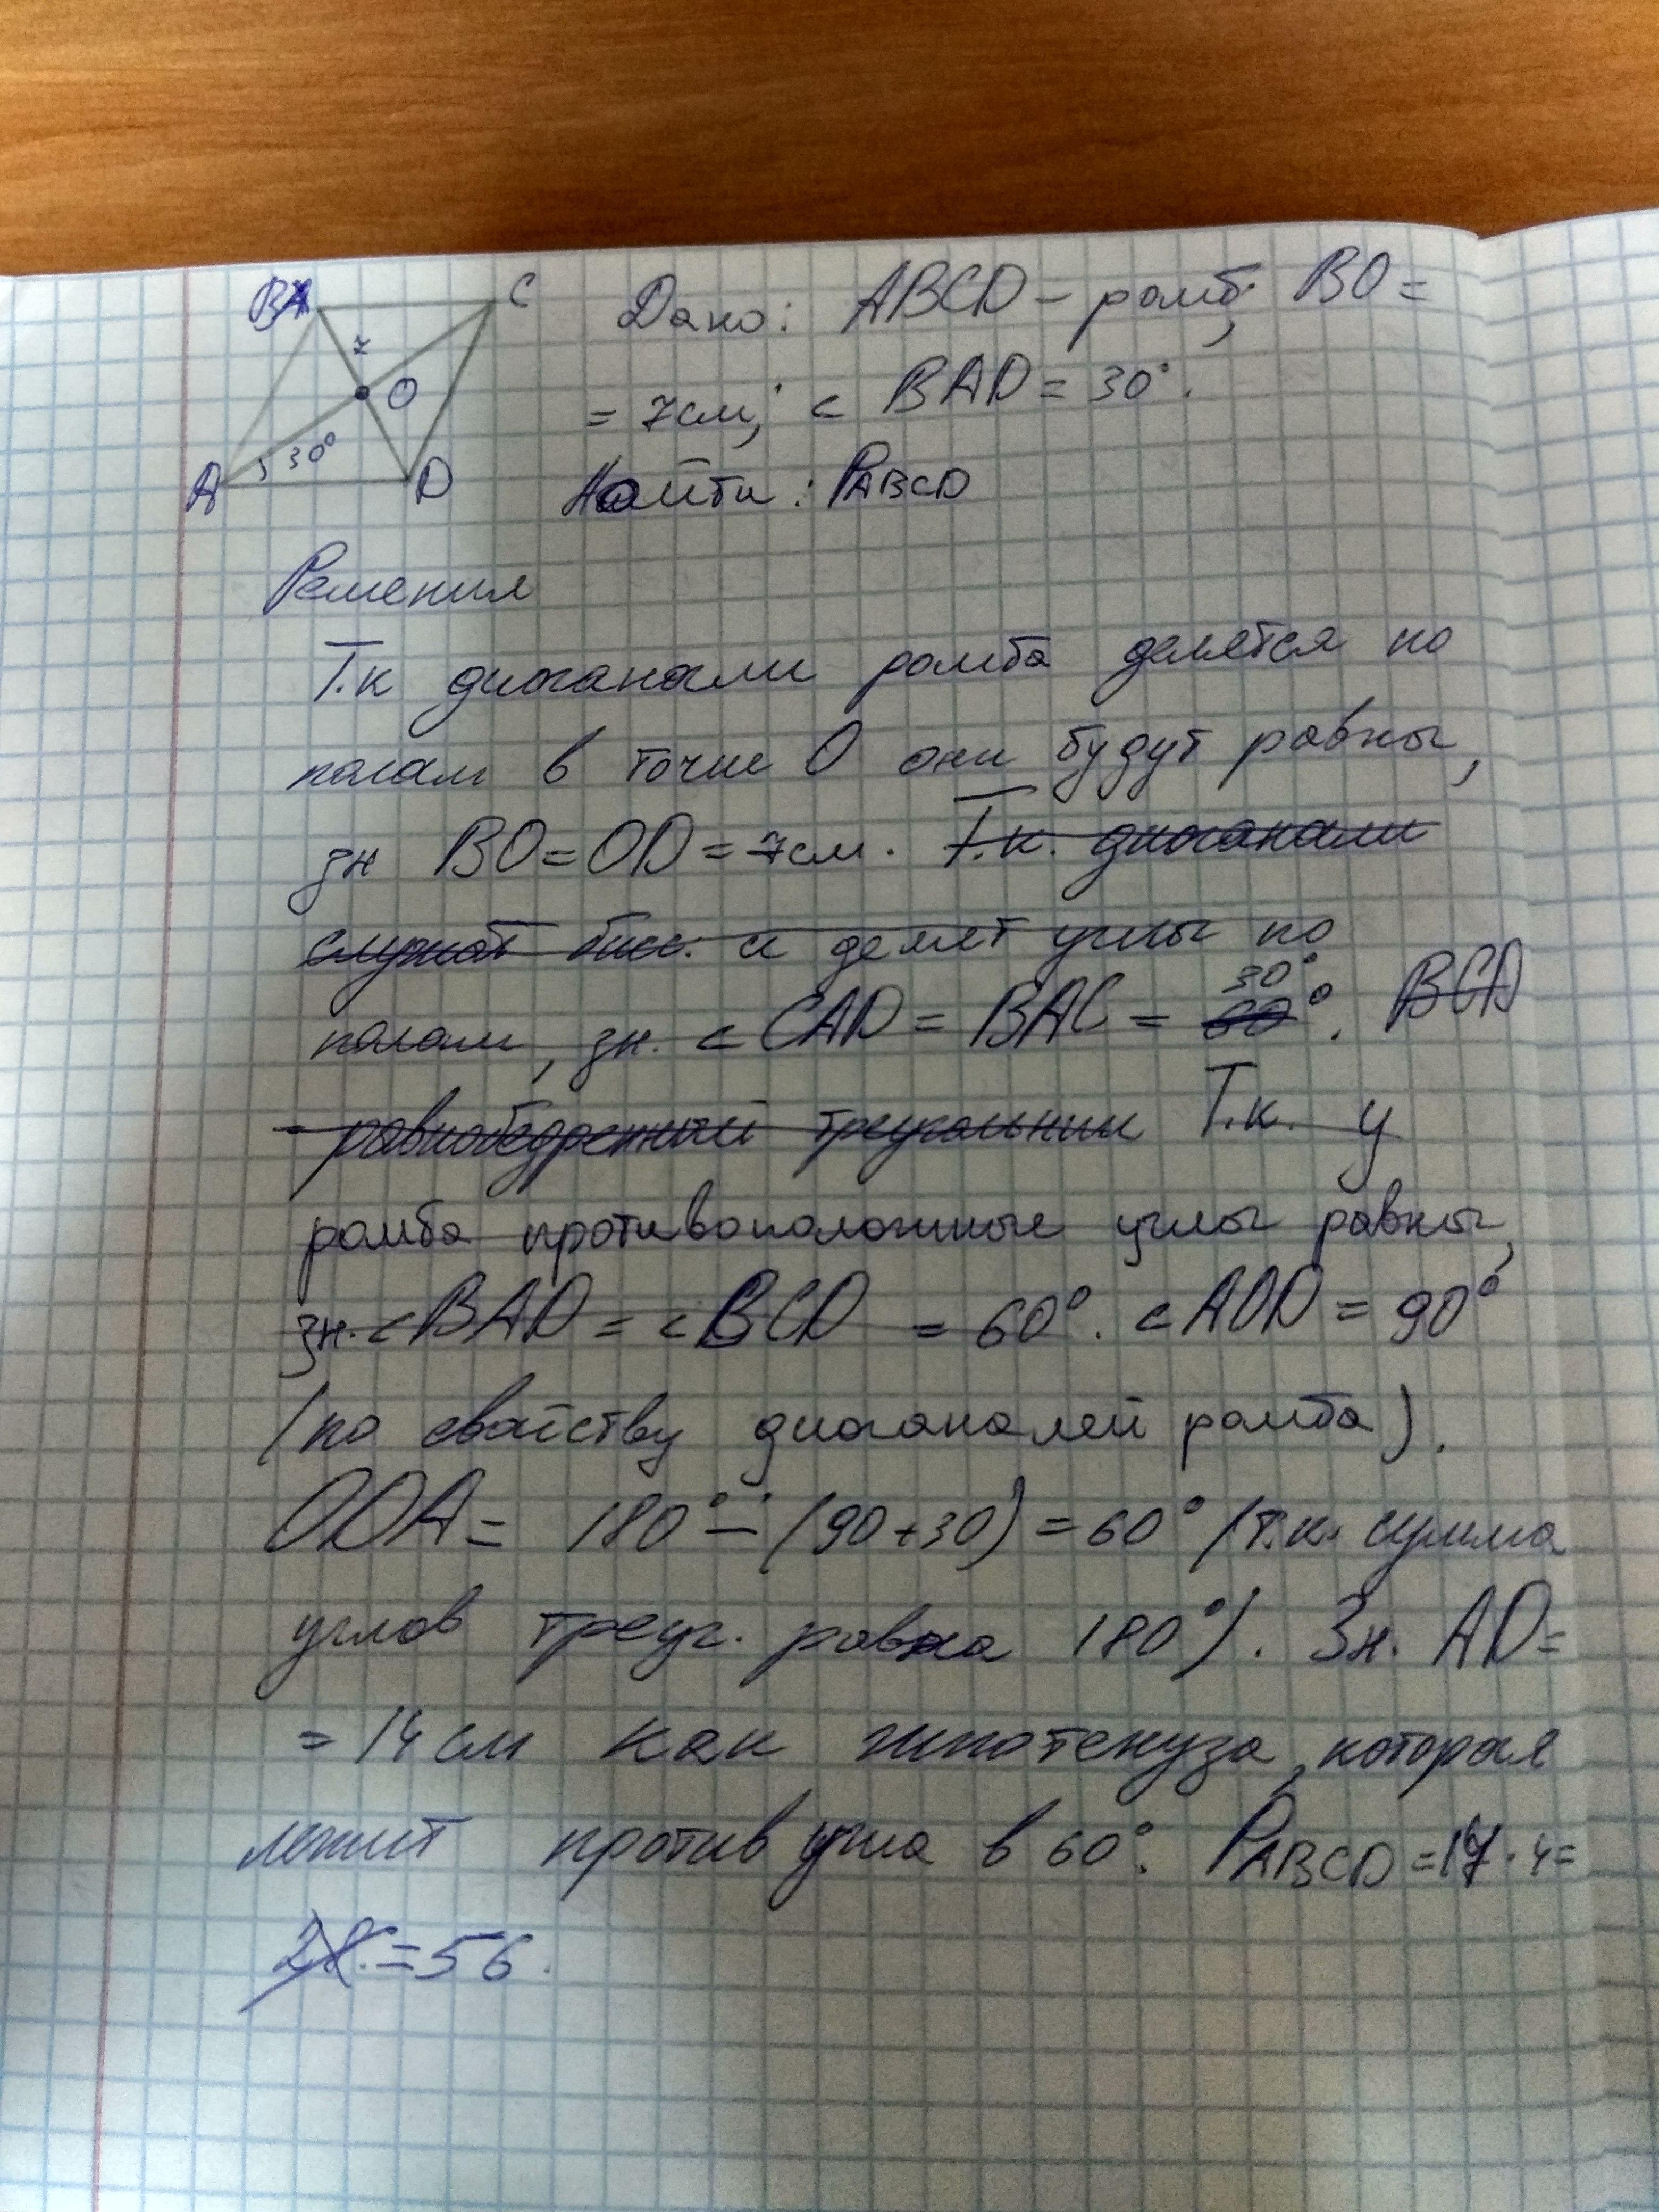 B C Дано: ABCD – ромб; BO =
7 O = 7см; < BAD = 30°.
A 30° D Найти: PABCD
Решения
Т.к диоганали ромба делятся по
палам в точке O они будут равны,
зн BO = OD = 7см. Т.к. диоганали
служат бисс. и делят углы по
палам, зн. < CAD = BAC = 30°. BCD
- равнобедренный треугольник Т.к. у
ромба противоположные углы равны,
зн. < BAD = < BCD = 60°. < AOD = 90°
(по свайству диоганалей ромба).
ODA = 180° – (90+30) = 60° (т.к. сумма
углов треуг. равна 180°). Зн. AD =
= 14 см как гипотенуза, которая
лежит против угла в 60°. PABCD = 14 · 4 =
28. = 56.